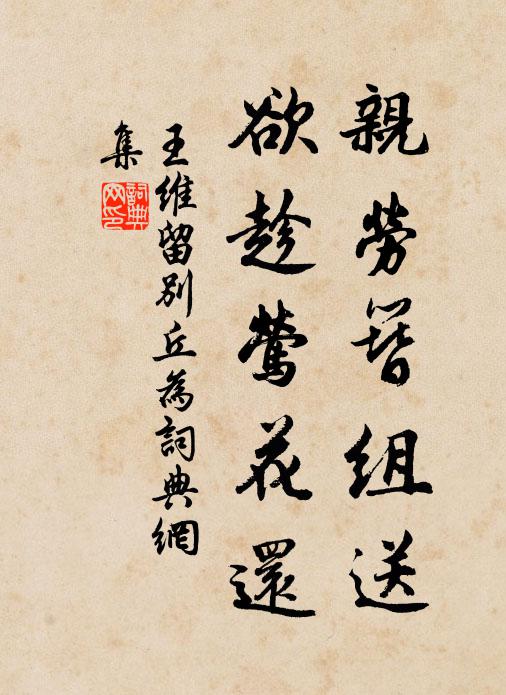 親勞簪組送
欲趁鶯花還
王維留別丘為詞典網
集
詞典
网印